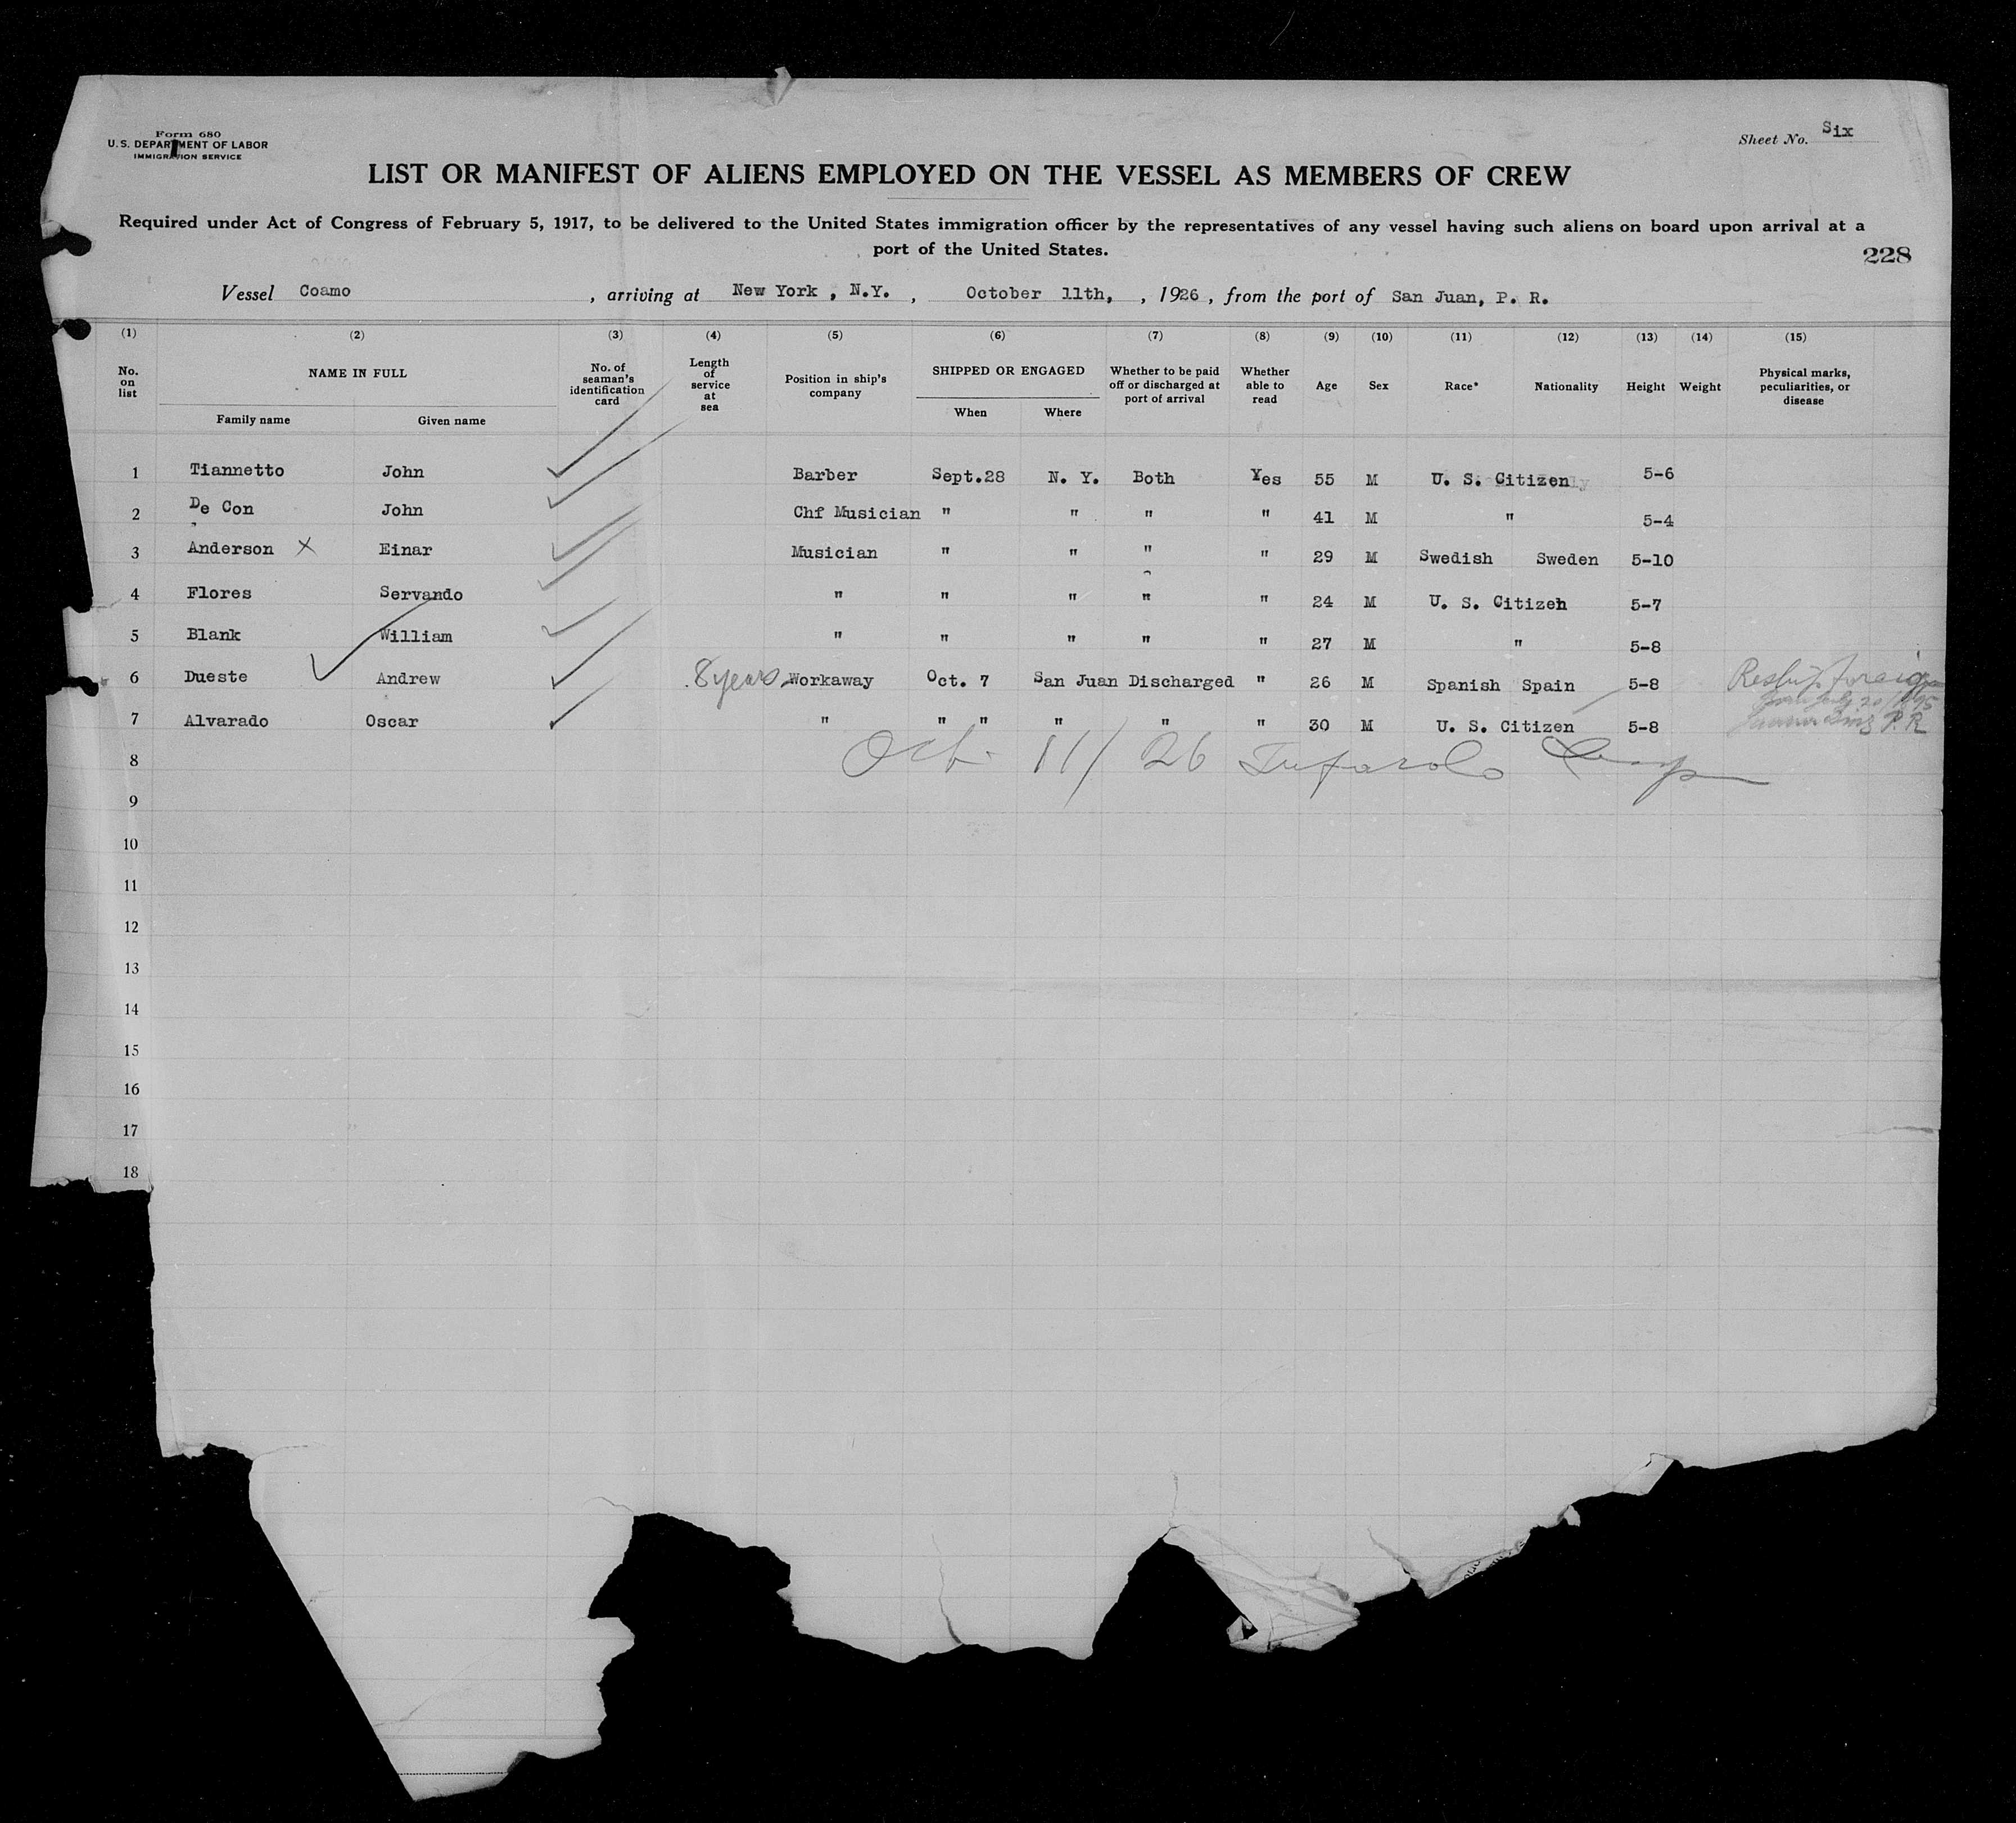 Form 680
U. S. DEPARTMENT OF LABOR
IMMIGRATION SERVICE
Sheet No. Six
LIST OR MANIFEST OF ALIENS EMPLOYED ON THE VESSEL AS MEMBERS OF CREW
Required under Act of Congress of February 5, 1917, to be delivered to the United States immigration officer by the representatives of any vessel having such aliens on board upon arrival at a
port of the United States.
228
Vessel Coamo , arriving at New York , N.Y. , October 11th, , 1926 , from the port of San Juan, P. R.
(1) (2) (3) (4) (5) (6) (7) (8) (9) (10) (11) (12) (13) (14) (15)
No. on list NAME IN FULL Family name Given name No. of seaman's identification card Length of service at sea Position in ship's company SHIPPED OR ENGAGED When Where Whether to be paid off or discharged at port of arrival Whether able to read Age Sex Race* Nationality Height Weight Physical marks, peculiarities, or disease
1 Tiannetto John Barber Sept.28 N. Y. Both Yes 55 M U. S. Citizen 5-6
2 De Con John Chf Musician " " " " 41 M " 5-4
3 Anderson X Einar Musician " " " " 29 M Swedish Sweden 5-10
4 Flores Servando " " " " " 24 M U. S. Citizen 5-7
5 Blank William " " " " " 27 M " 5-8
6 Dueste Andrew 8 years Workaway Oct. 7 San Juan Discharged " 26 M Spanish Spain 5-8 Reship foreign
7 Alvarado Oscar " " " " " " 30 M U. S. Citizen 5-8 P.R
8 Oct 11/26
9
10
11
12
13
14
15
16
17
18